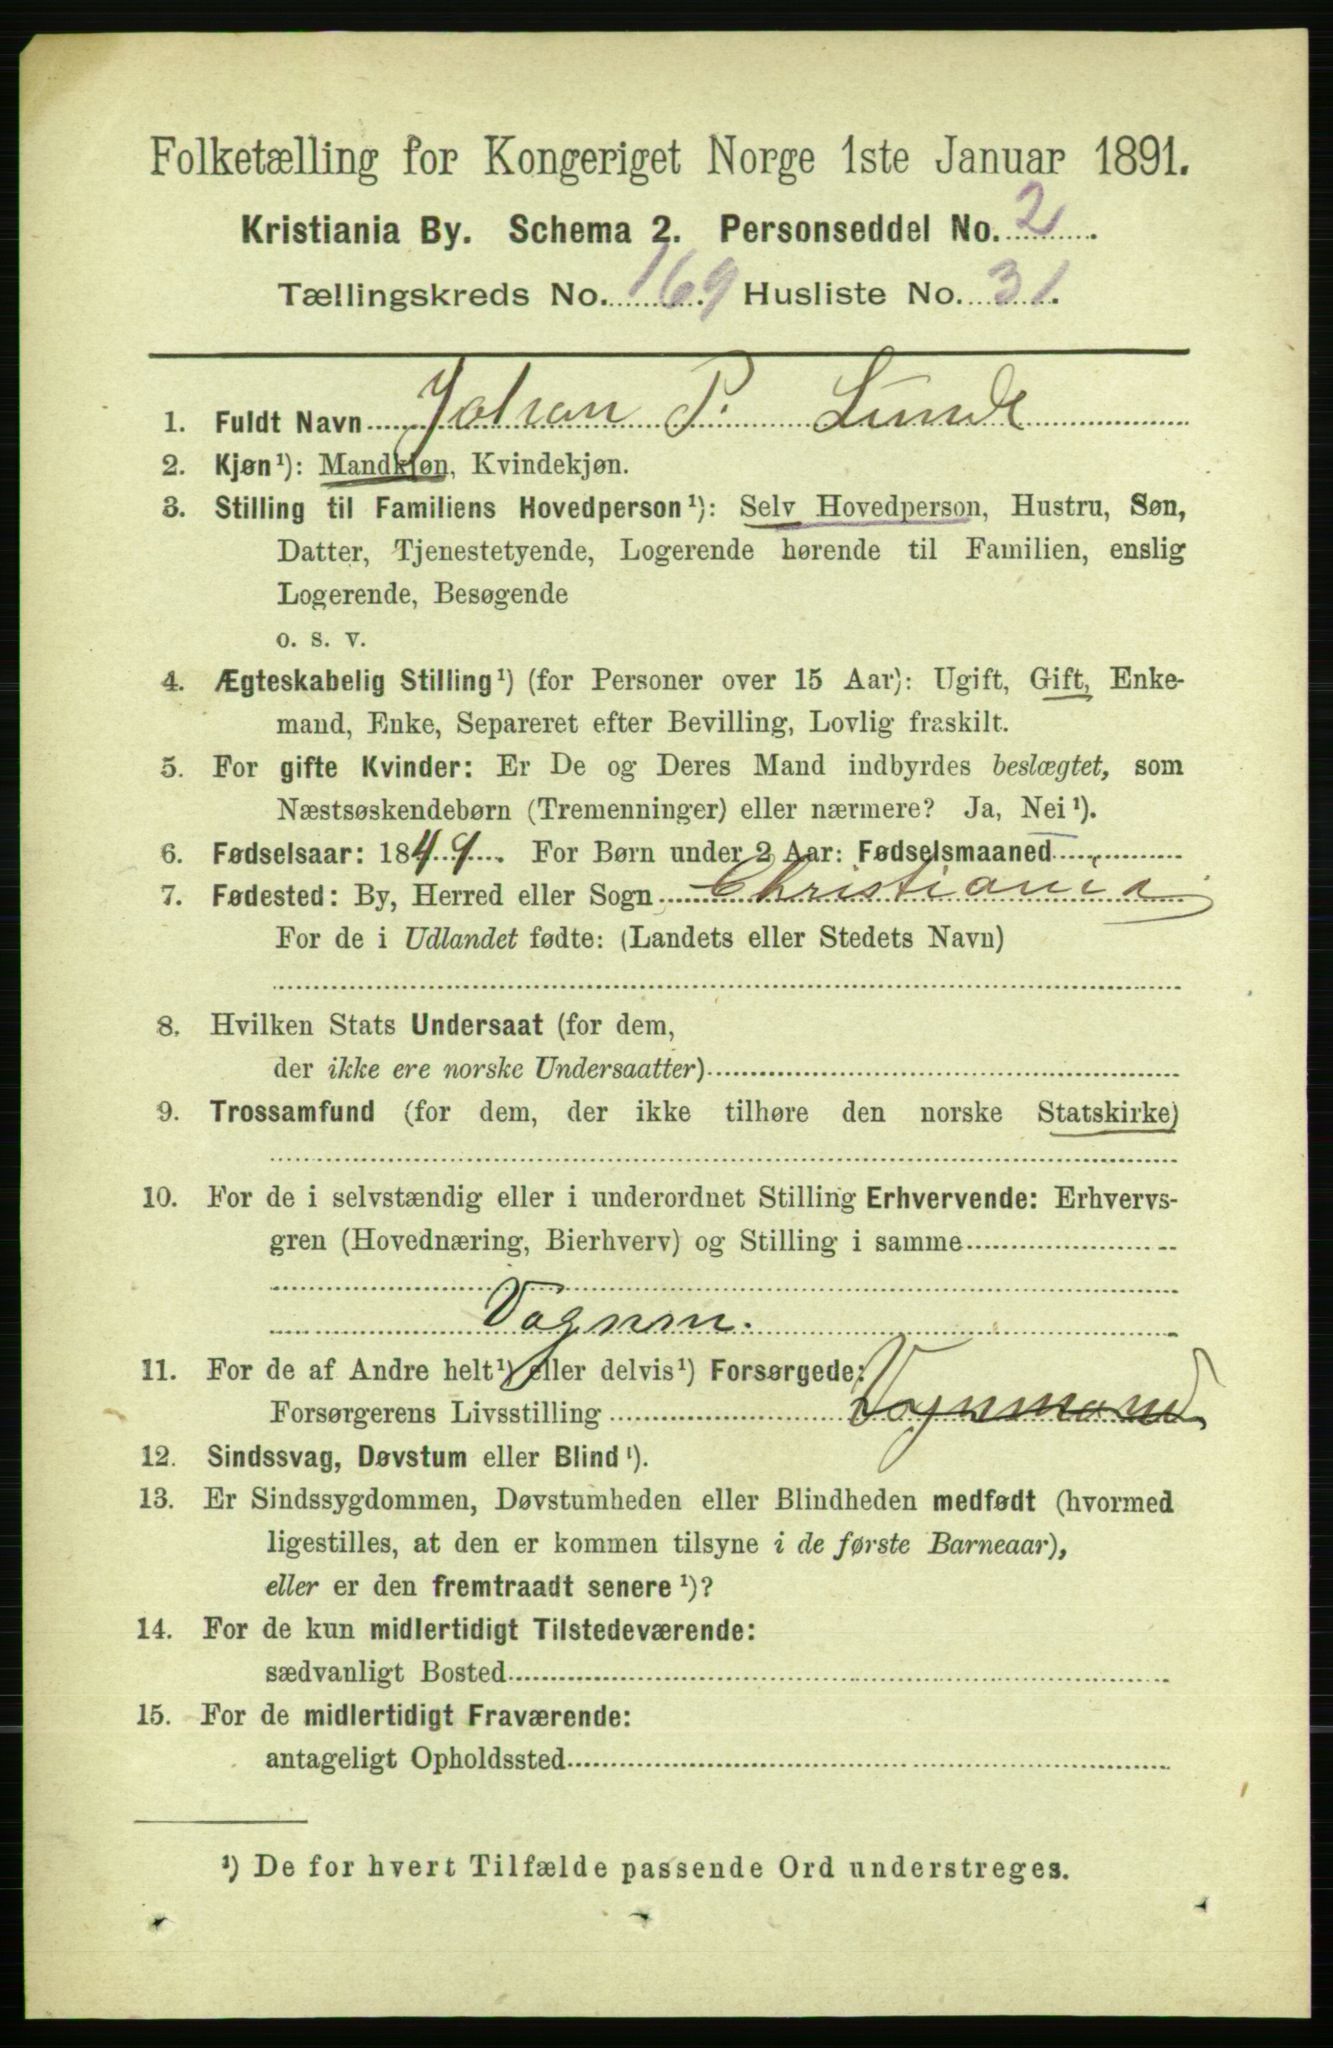 Folketælling for Kongeriget Norge 1ste Januar 1891.
Kristiania By. Schema 2. Personseddel No. 2.
Tællingskreds No. 169 Husliste No. 31.
1. Fuldt Navn Johan P. Lunde
2. Kjøn¹): Mandkjøn, Kvindekjøn.
3. Stilling til Familiens Hovedperson¹): Selv Hovedperson, Hustru, Søn,
Datter, Tjenestetyende, Logerende hørende til Familien, enslig
Logerende, Besøgende
o. s. v.
4. Ægteskabelig Stilling¹) (for Personer over 15 Aar): Ugift, Gift, Enke-
mand, Enke, Separeret efter Bevilling, Lovlig fraskilt.
5. For gifte Kvinder: Er De og Deres Mand indbyrdes beslægtet, som
Næstsøskendebørn (Tremenninger) eller nærmere? Ja, Nei¹).
6. Fødselsaar: 1849. For Børn under 2 Aar: Fødselsmaaned
7. Fødested: By, Herred eller Sogn Christiania
For de i Udlandet fødte: (Landets eller Stedets Navn)
8. Hvilken Stats Undersaat (for dem,
der ikke ere norske Undersaatter)
9. Trossamfund (for dem, der ikke tilhøre den norske Statskirke)
10. For de i selvstændig eller i underordnet Stilling Erhvervende: Erhvervs-
gren (Hovednæring, Bierhverv) og Stilling i samme
Vognm.
11. For de af Andre helt¹) eller delvis¹) Forsørgede:
Forsørgerens Livsstilling Vognmand
12. Sindssvag, Døvstum eller Blind¹).
13. Er Sindssygdommen, Døvstumheden eller Blindheden medfødt (hvormed
ligestilles, at den er kommen tilsyne i de første Barneaar),
eller er den fremtraadt senere¹)?
14. For de kun midlertidigt Tilstedeværende:
sædvanligt Bosted
15. For de midlertidigt Fraværende:
antageligt Opholdssted
¹) De for hvert Tilfælde passende Ord understreges.